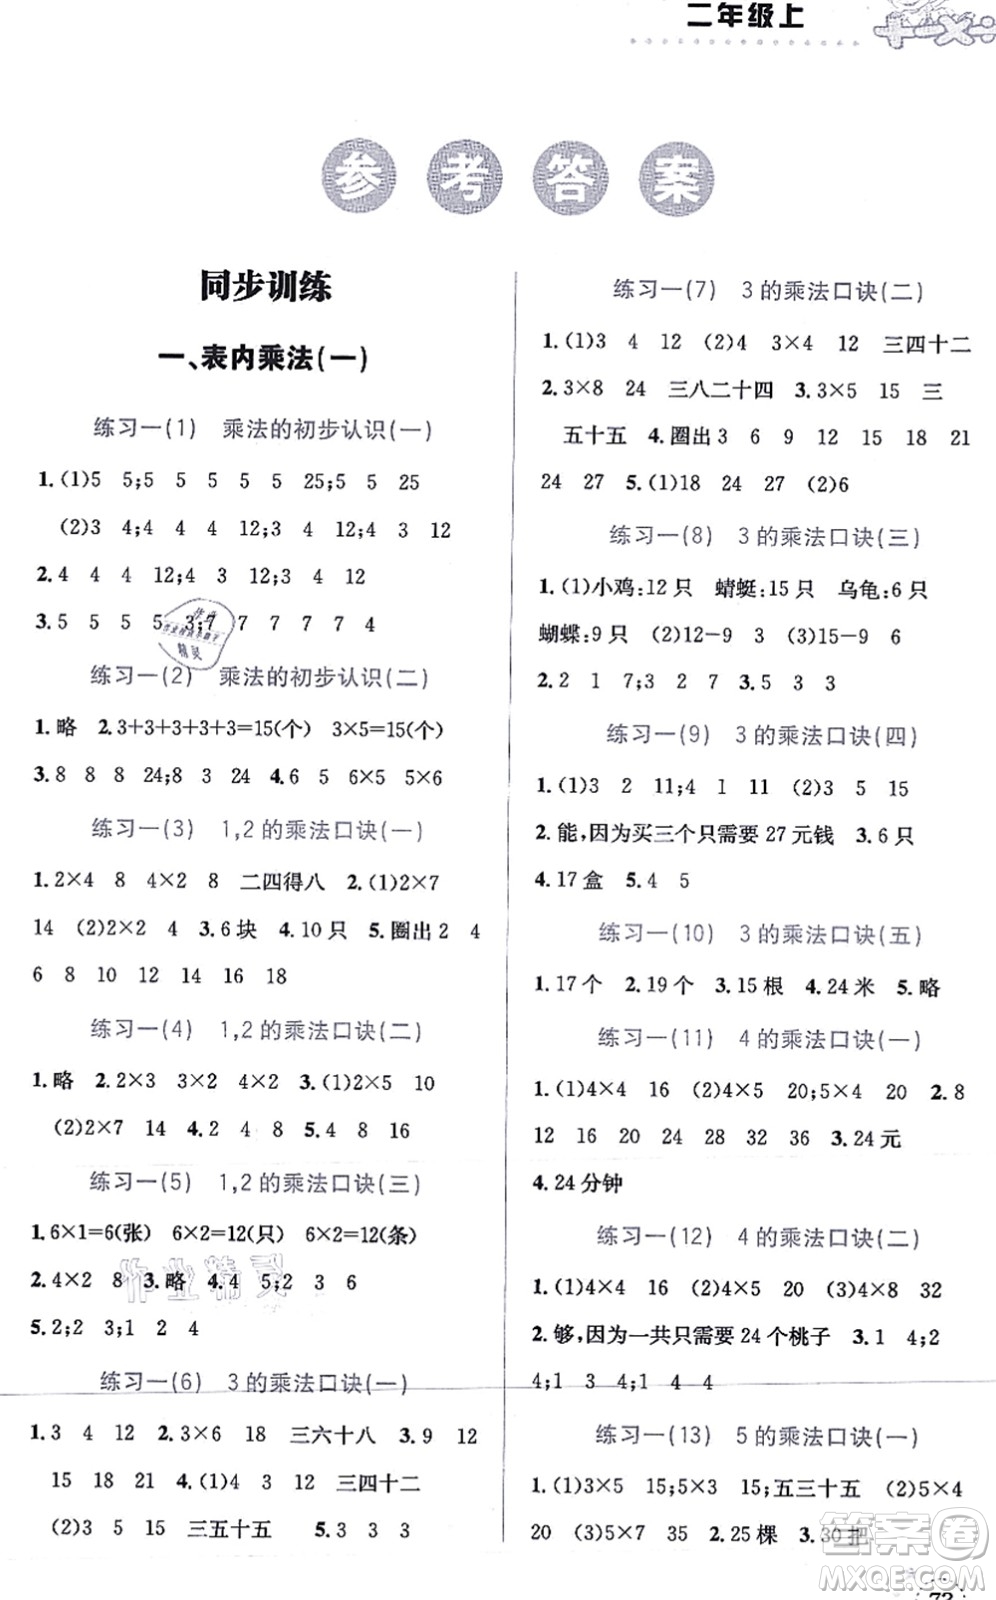 二年级上
参考答案
同步训练
一、表内乘法(一)
练习一(1) 乘法的初步认识(一)
1.(1)5 5;5 5 5 5 5 25;5 5 25
(2)3 4;4 4 4 12;3 4 12;4 3 12
2.4 4 4 12;4 3 12;3 4 12
3.5 5 5 5 5 3;7 7 7 7 7 4
练习一(2) 乘法的初步认识(二)
1.略 2.3+3+3+3+3=15(个) 3×5=15(个)
3.8 8 8 24;8 3 24 4.6 5 6×5 5×6
练习一(3) 1,2的乘法口诀(一)
1.2×4 8 4×2 8 二四得八 2.(1)2×7
14 (2)2×2 4 3.6块 4.10只 5.圈出2 4
6 8 10 12 14 16 18
练习一(4) 1,2的乘法口诀(二)
1.略 2.2×3 3×2 6 3.(1)2×5 10
(2)2×7 14 4.2 4 8 5.4 8 16
练习一(5) 1,2的乘法口诀(三)
1.6×1=6(张) 6×2=12(只) 6×2=12(条)
2.4×2 8 3.略 4.4 5;2 3 6
5.2;2 3;1 2 4
练习一(6) 3的乘法口诀(一)
1.3 4 12 2.3×6 18 三六十八 3.9 12
15 18 21 4.(1)4 3 12 三四十二
(2)3 5 15 三五十五 5.3 3 3
练习一(7) 3的乘法口诀(二)
1.(1)3 4 12 (2)4 3×4 12 三四十二
2.3×8 24 三八二十四 3.3×5 15 三
五十五 4.圈出3 6 9 12 15 18 21
24 27 5.(1)18 24 27 (2)6
练习一(8) 3的乘法口诀(三)
1.(1)小鸡:12只 蜻蜓:15只 乌龟:6只
蝴蝶:9只 (2)15-6=9(只) 12-9=3(只)
2.2 1 7;3 4 8 3.5 3 3
练习一(9) 3的乘法口诀(四)
1.(1)3 2 11;4 1 11 (2)3 5 15
2.能,因为买三个只需要27元钱 3.6只
4.17盒 5.4 5
练习一(10) 3的乘法口诀(五)
1.17个 2.19个 3.15根 4.24米 5.略
练习一(11) 4的乘法口诀(一)
1.(1)4×4 16 (2)4×5 20;5×4 20 2.8
12 16 20 24 28 32 36 3.24元
4.24分钟
练习一(12) 4的乘法口诀(二)
1.(1)4×4 16 (2)4×6 24 (3)4×8 32
2.够,因为一共只需要24个桃子 3.1 4;2
4;1 3 4;1 4 4
练习一(13) 5的乘法口诀(一)
1.(1)3×5 15;5×3 15;五三十五 (2)5×4
20 (3)5×7 35 2.25棵 3.30把
答案卷
MXQE.COM
作业精灵
73